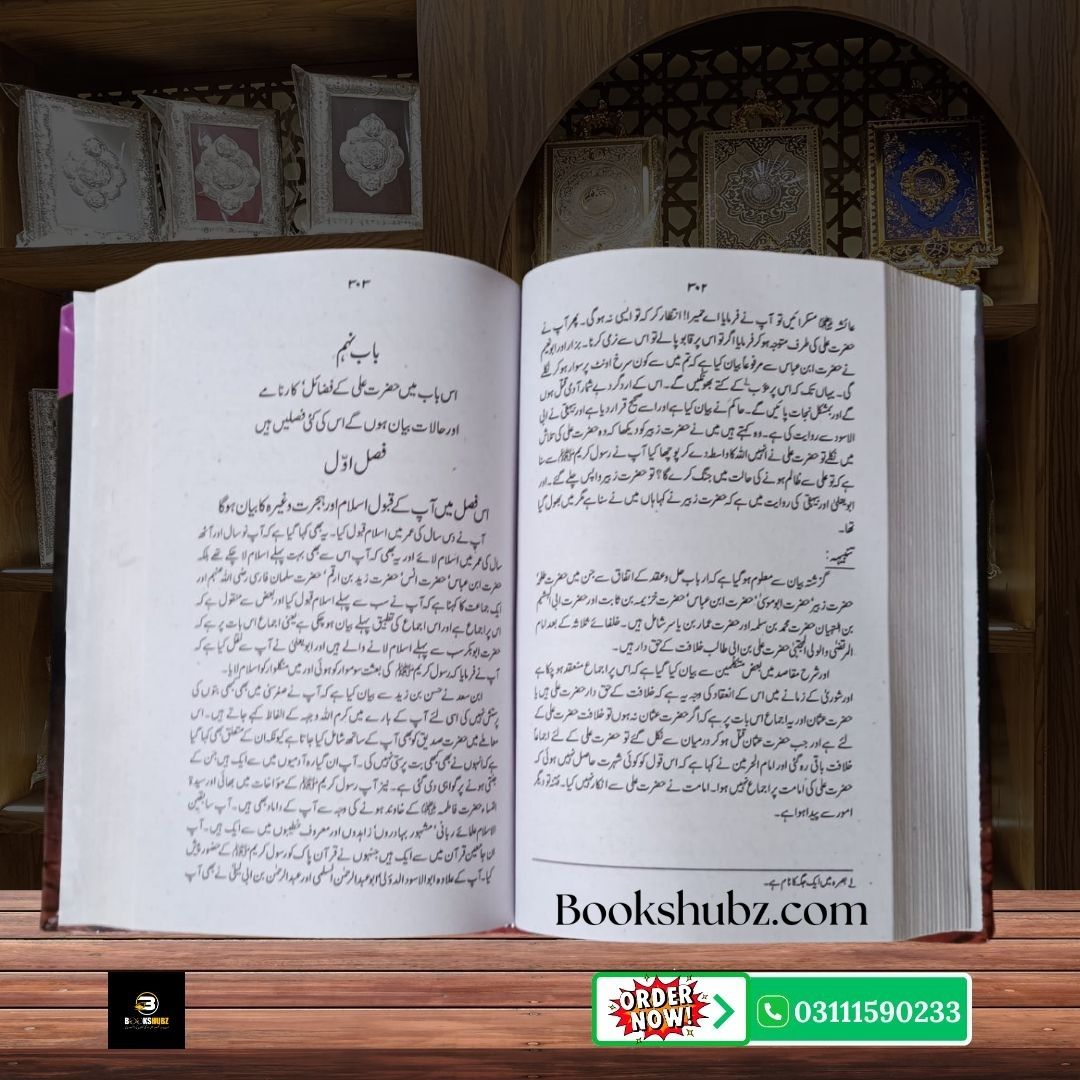 ۳۰۲
عائشہ ﷞ مسکرائیں تو آپ نے فرمایا اے حمیرا! انتظار کر کہ تو ایسی نہ ہوگی۔ پھر آپ نے
حضرت علی کی طرف متوجہ ہو کر فرمایا اگر تو اس پر قابو پالے تو اس سے نرمی کرنا۔ بزار اور ابو نعیم
نے حضرت ابن عباس سے مرفوعاً بیان کیا ہے کہ تم میں سے کون سرخ اونٹ پر سوار ہو کر نکلے
گی۔ یہاں تک کہ اس پر حوءب لے کے کتے بھونکیں گے۔ اس کے ارد گرد بے شمار آدمی قتل ہوں
گے اور بمشکل نجات پائیں گے۔ حاکم نے بیان کیا ہے اور اسے صحیح قرار دیا ہے اور بیہقی نے ابی
الاسود سے روایت کی ہے۔ وہ کہتے ہیں میں نے حضرت زبیر کو دیکھا کہ وہ حضرت علی کی تلاش
میں نکلے تو حضرت علی نے انہیں اللہ کا واسطہ دے کر پوچھا کیا آپ نے رسول کریم ﷺ سے سنا
ہے کہ تو علی سے ظالم ہونے کی حالت میں جنگ کرے گا؟ تو حضرت زبیر واپس چلے گئے۔ اور
ابویعلیٰ اور بیہقی کی روایت میں ہے کہ حضرت زبیر نے کہا ہاں میں نے سنا ہے مگر میں بھول گیا
تھا۔
تنبیہہ:
گزشتہ بیان سے معلوم ہو گیا ہے کہ ارباب حل و عقد کے اتفاق سے جن میں حضرت طلحہ
حضرت زبیر' حضرت ابوموسیٰ' حضرت ابن عباس' حضرت خزیمہ بن ثابت اور حضرت ابی الہیثم
بن التیہان حضرت محمد بن سلمہ اور حضرت عمار بن یاسر شامل ہیں۔ خلفائے ثلاثہ کے بعد امام
المرتضیٰ والولی المجتبیٰ حضرت علی بن ابی طالب خلافت کے حق دار ہیں۔
اور شرح مقاصد میں بعض متکلمین سے بیان کیا گیا ہے کہ اس پر اجماع منعقد ہو چکا ہے
اور شوریٰ کے زمانے میں اس کے انعقاد کی وجہ یہ ہے کہ خلافت کے حق دار حضرت علی ہیں یا
حضرت عثمان اور یہ اجماع اس بات پر ہے کہ اگر حضرت عثمان نہ ہوں تو خلافت حضرت علی کے
لئے ہے اور جب حضرت عثمان قتل ہو کر درمیان سے نکل گئے تو حضرت علی کے لئے اجماعاً
خلافت باقی رہ گئی اور امام الحرمین نے کہا ہے کہ اس قول کو کوئی شہرت حاصل نہیں ہوئی کہ
حضرت علی کی امامت پر اجماع نہیں ہوا۔ امامت نے حضرت علی سے انکار نہیں کیا۔ فتنہ تو دیگر
امور سے پیدا ہوا ہے۔
لے بصرہ میں ایک جگہ کا نام ہے۔
۳۰۳
باب نہم
اس باب میں حضرت علی کے فضائل' کارنامے
اور حالات بیان ہوں گے اس کی کئی فصلیں ہیں
فصل اوّل
اس فصل میں آپ کے قبول اسلام اور ہجرت وغیرہ کا بیان ہوگا
آپ نے دس سال کی عمر میں اسلام قبول کیا۔ یہ بھی کہا گیا ہے کہ آپ نو سال اور آٹھ
سال کی عمر میں اسلام لائے اور یہ بھی کہ آپ اس سے بھی بہت پہلے اسلام لا چکے تھے بلکہ
حضرت ابن عباس' حضرت انس' حضرت زید بن ارقم' حضرت سلمان فارسی رضی اللہ عنہم اور
ایک جماعت کا کہنا ہے کہ آپ نے سب سے پہلے اسلام قبول کیا اور بعض سے منقول ہے کہ
اس پر اجماع ہے اور اس اجماع کی تطبیق پہلے بیان ہو چکی ہے یعنی اجماع اس بات پر ہے کہ
حضرت ابوبکر سب سے پہلے اسلام لانے والے ہیں اور ابویعلیٰ نے آپ سے نقل کیا ہے کہ
آپ نے فرمایا کہ رسول کریم ﷺ کی بعثت سوموار کو ہوئی اور میں منگلوار کو اسلام لایا۔
ابن سعد نے حسن بن زید سے بیان کیا ہے کہ آپ نے صغرسنی میں بھی کبھی بتوں کی
پرستش نہیں کی اسی لئے آپ کے بارے میں کرم اللہ وجہہ کے الفاظ کہے جاتے ہیں۔ اس
معاملے میں حضرت صدیق کو بھی آپ کے ساتھ شامل کیا جاتا ہے کیونکہ ان کے متعلق بھی کہا گیا
ہے کہ انہوں نے بھی کبھی بت پرستی نہیں کی۔ آپ ان گیارہ آدمیوں میں سے ایک ہیں جن کے
جنتی ہونے پر گواہی دی گئی ہے۔ نیز آپ رسول کریم ﷺ کے مؤاخات میں بھائی اور سیدۃ
النساء حضرت فاطمہ ﷞ کے خاوند ہونے کی وجہ سے آپ کے داماد بھی ہیں۔ آپ سابقین
الاسلام علمائے ربانی' مشہور بہادروں' زاہدوں اور معروف خطیبوں میں سے ایک ہیں۔ آپ
ان جامعین قرآن میں سے ایک ہیں جنہوں نے قرآن پاک کو رسول کریم ﷺ کے حضور پیش
کیا۔ آپ کے علاوہ ابوالاسود الدؤلی' ابوعبدالرحمٰن السلمی اور عبدالرحمٰن بن ابی لیلیٰ نے بھی آپ
Bookshubz.com
BOOKSHUBZ
ORDER NOW!
03111590233